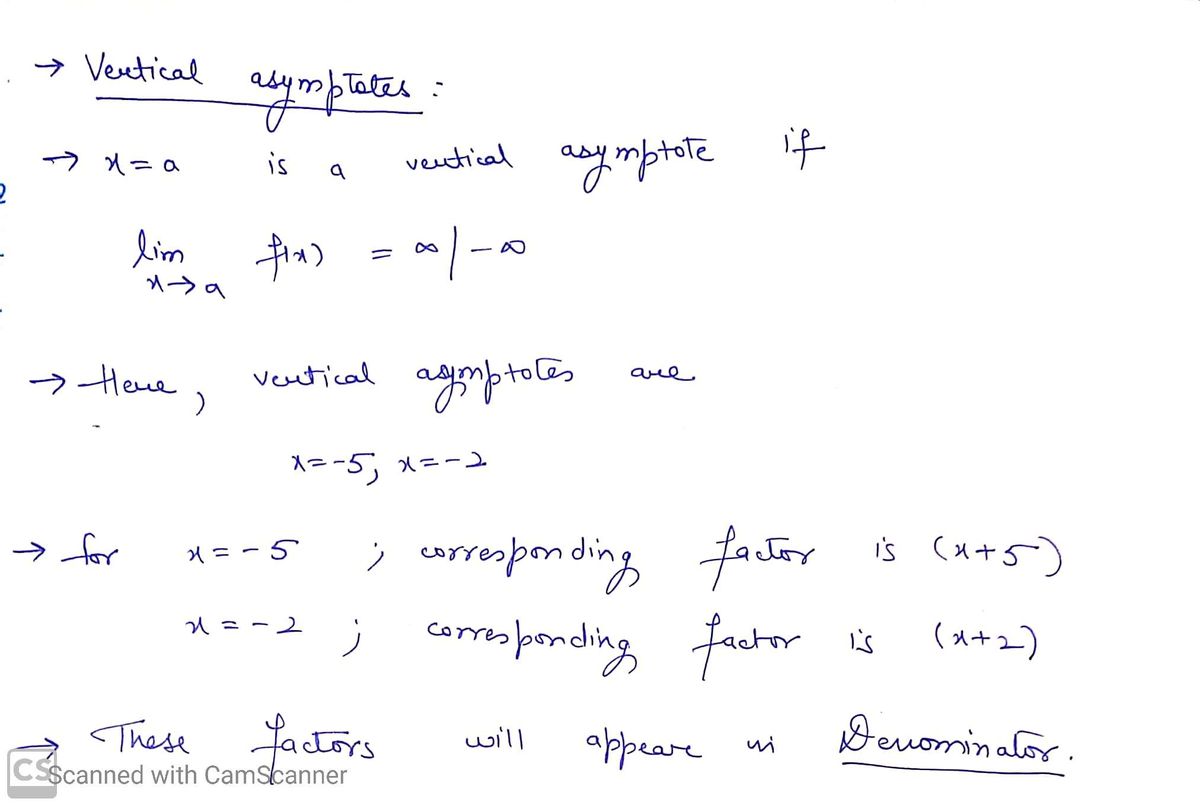 → Vertical asymptotes :
→ x = a is a vertical asymptote if
lim f(x) = ∞/-∞
x→a
→ Here, vertical asymptotes are
x=-5, x=-2
→ for x = -5 ; corresponding factor is (x+5)
x = -2 ; corresponding factor is (x+2)
→ These factors will appeare in Denominator.
CS Scanned with CamScanner